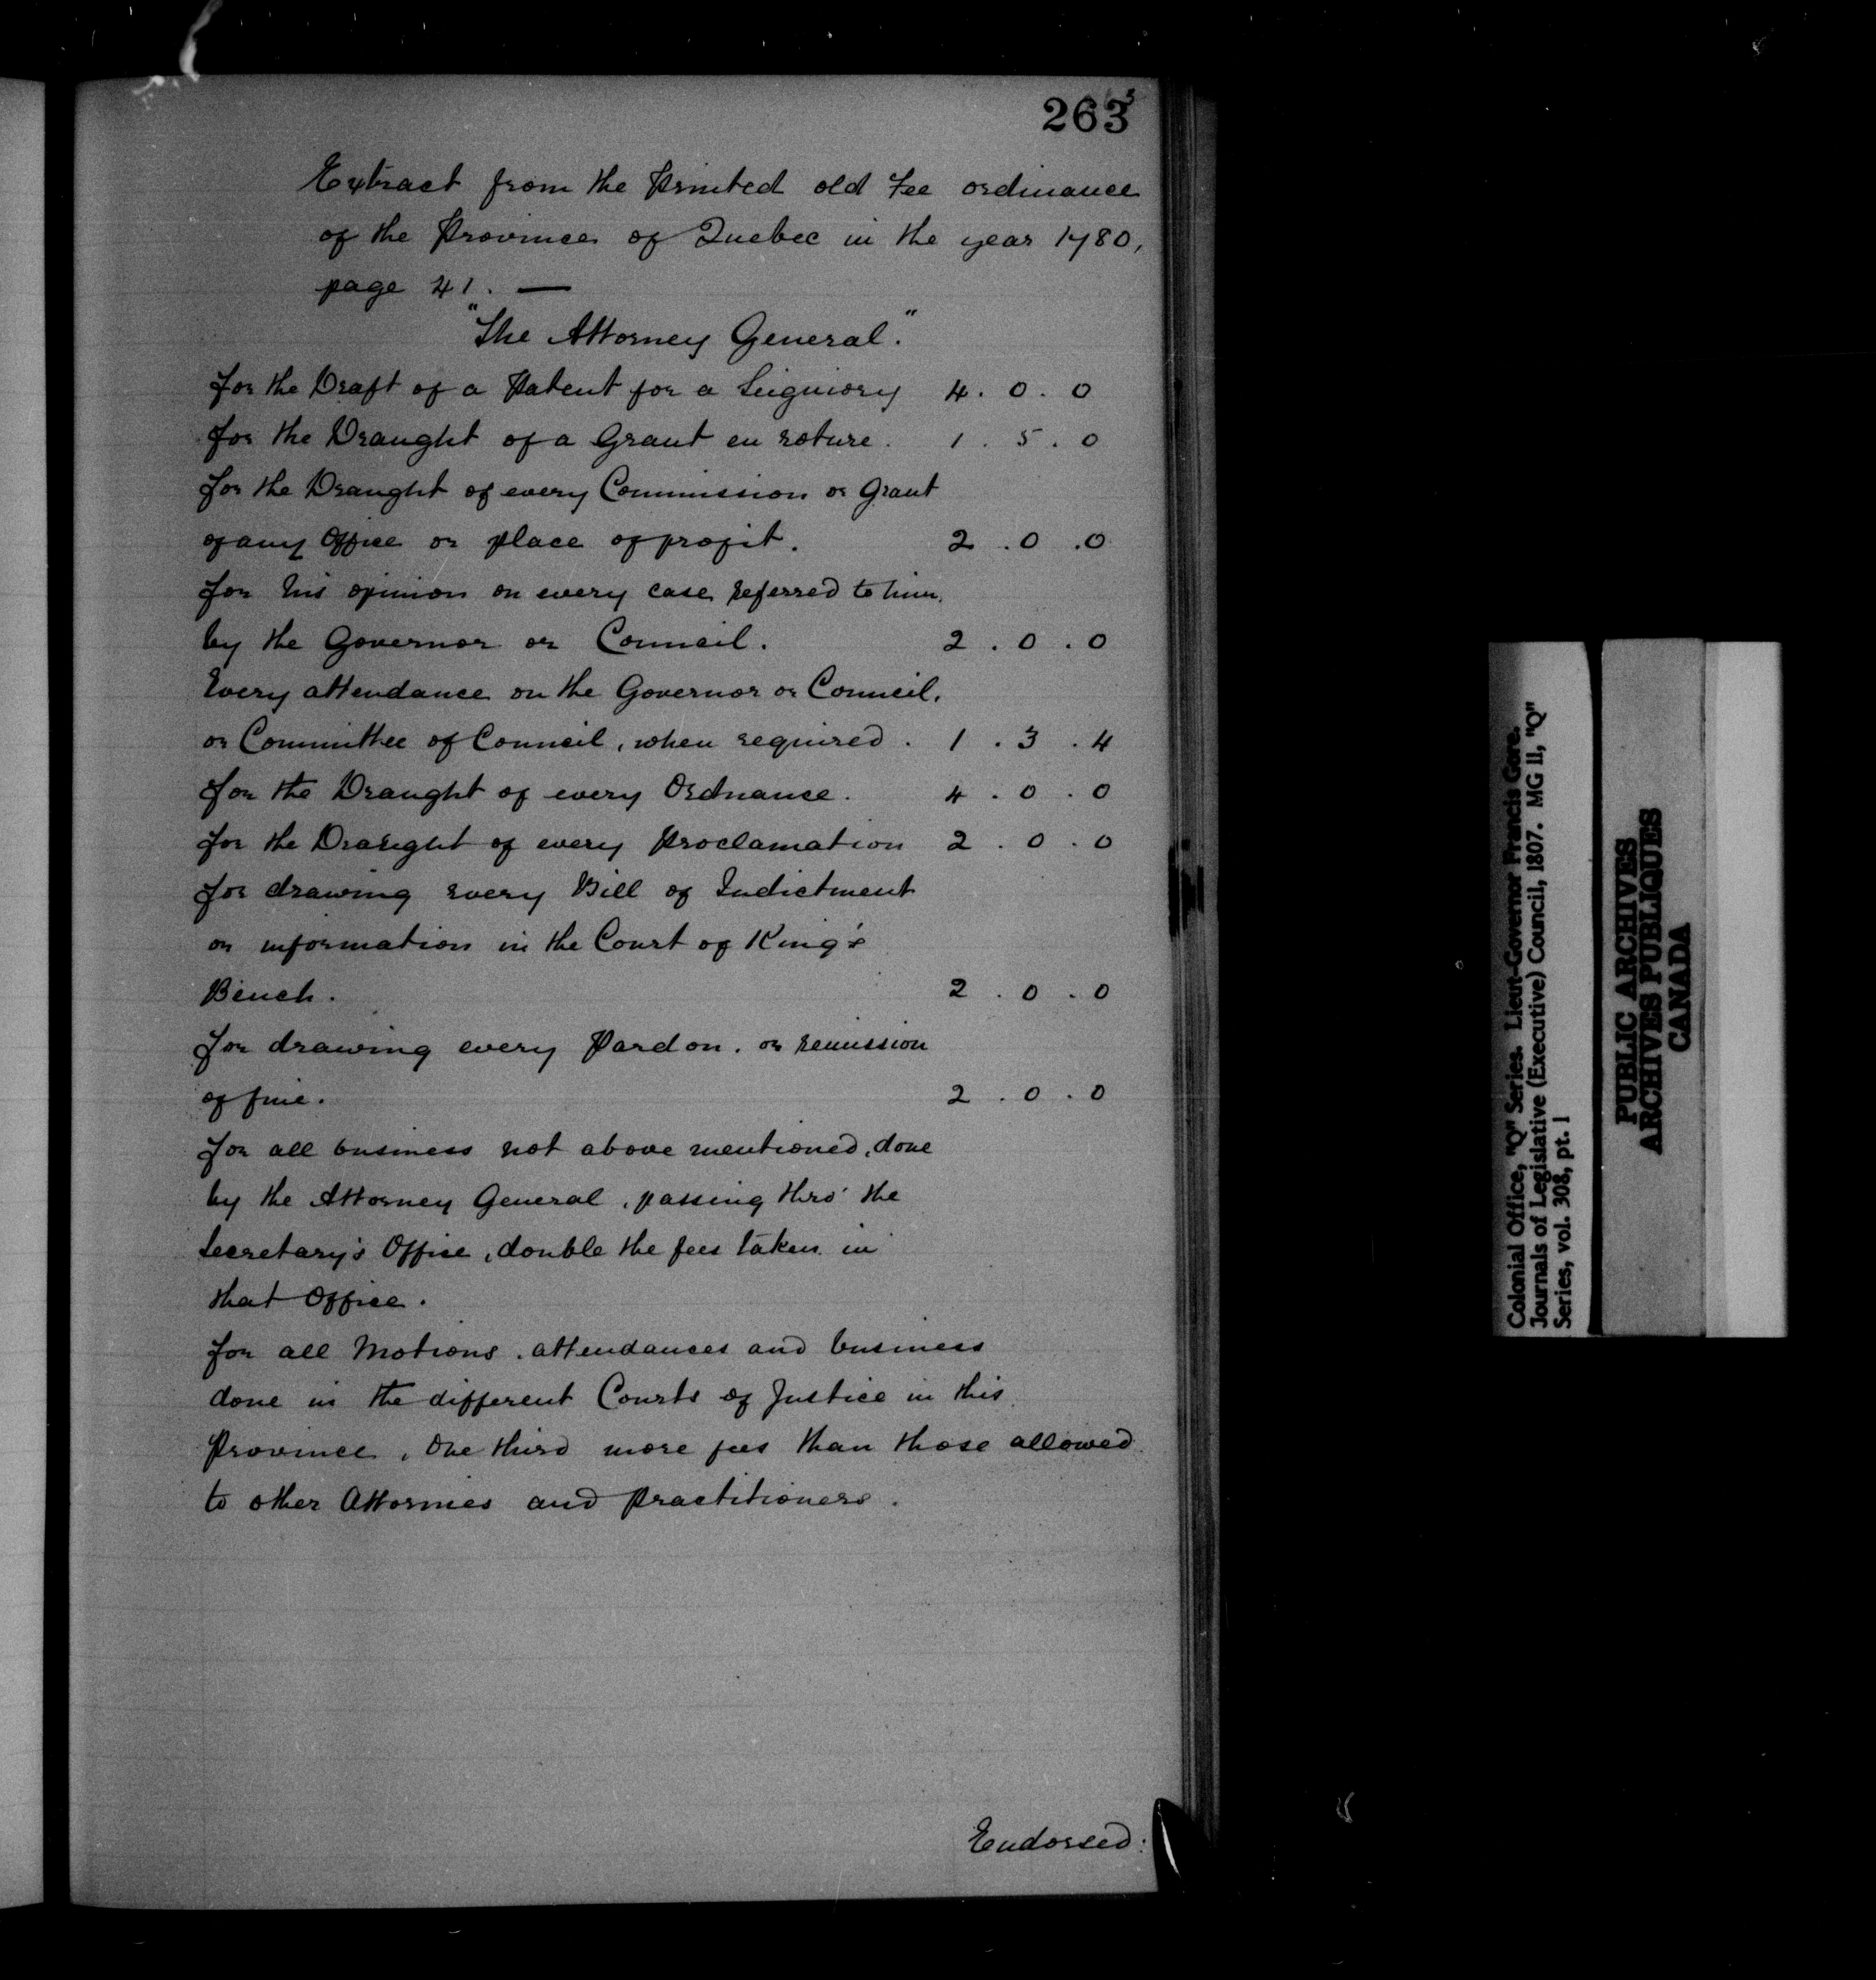 263
Extract from the Printed old Fee ordinance
of the Province of Quebec in the year 1780,
page 41. —
"The Attorney General".
for the Draft of a Patent for a Seigniory 4 . 0 . 0
for the Draught of a Grant en roture. 1 . 5 . 0
for the Draught of every Commission or Grant
of any Office or place of profit. 2 . 0 . 0
for his opinion on every case referred to him,
by the Governor or Council. 2 . 0 . 0
Every attendance on the Governor or Council,
or Committee of Council, when required. 1 . 3 . 4
for the Draught of every Ordnance. 4 . 0 . 0
for the Draught of every Proclamation 2 . 0 . 0
for drawing every Bill of Indictment
or information in the Court of King's
Bench. 2 . 0 . 0
for drawing every Pardon, or remission
of fine. 2 . 0 . 0
for all business not above mentioned, done
by the Attorney General, passing thro' the
Secretary's Office, double the fees taken in
that Office.
for all Motions, attendances and business
done in the different Courts of Justice in this
Province, One third more fees than those allowed
to other Attornies and Practitioners.
Endorsed:
Colonial Office, "Q" Series. Lieut-Governor Francis Gore.
Journals of Legislative (Executive) Council, 1807. MG 11, "Q"
Series, vol. 308, pt. 1
PUBLIC ARCHIVES
ARCHIVES PUBLIQUES
CANADA